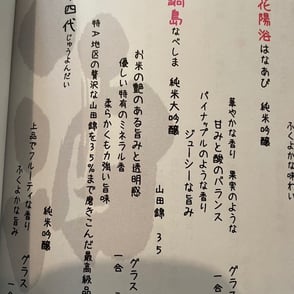 花陽浴 はなあび 純米吟醸
華やかな香り 果実のような
甘みと酸のバランス
グラス
パイナップルのような香り
ジューシーな旨み
一合
鍋島 なべしま 純米大吟醸
山田錦 35
お米の艶のある旨みと透明感
優しい特有のミネラル香
柔らかくも力強い旨味
グラス
特A地区の贅沢な山田錦を35%まで磨きこんだ最高級品
一合
四代 じゅうよんだい
純米吟醸
上品でフルーティな香り
ふくよかな旨み
グラス